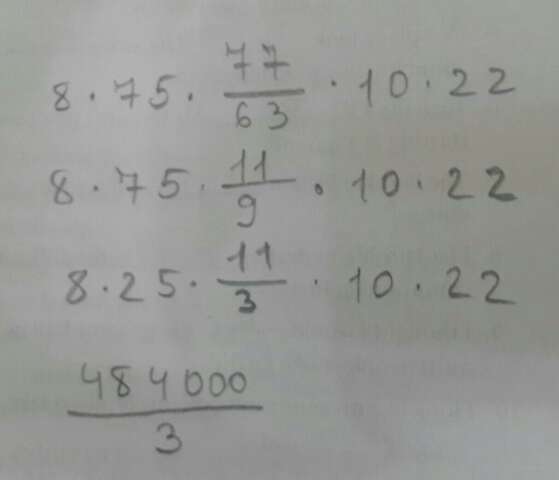 8 · 75 · 77/63 · 10 · 22
8 · 75 · 11/9 · 10 · 22
8 · 25 · 11/3 · 10 · 22
484000/3